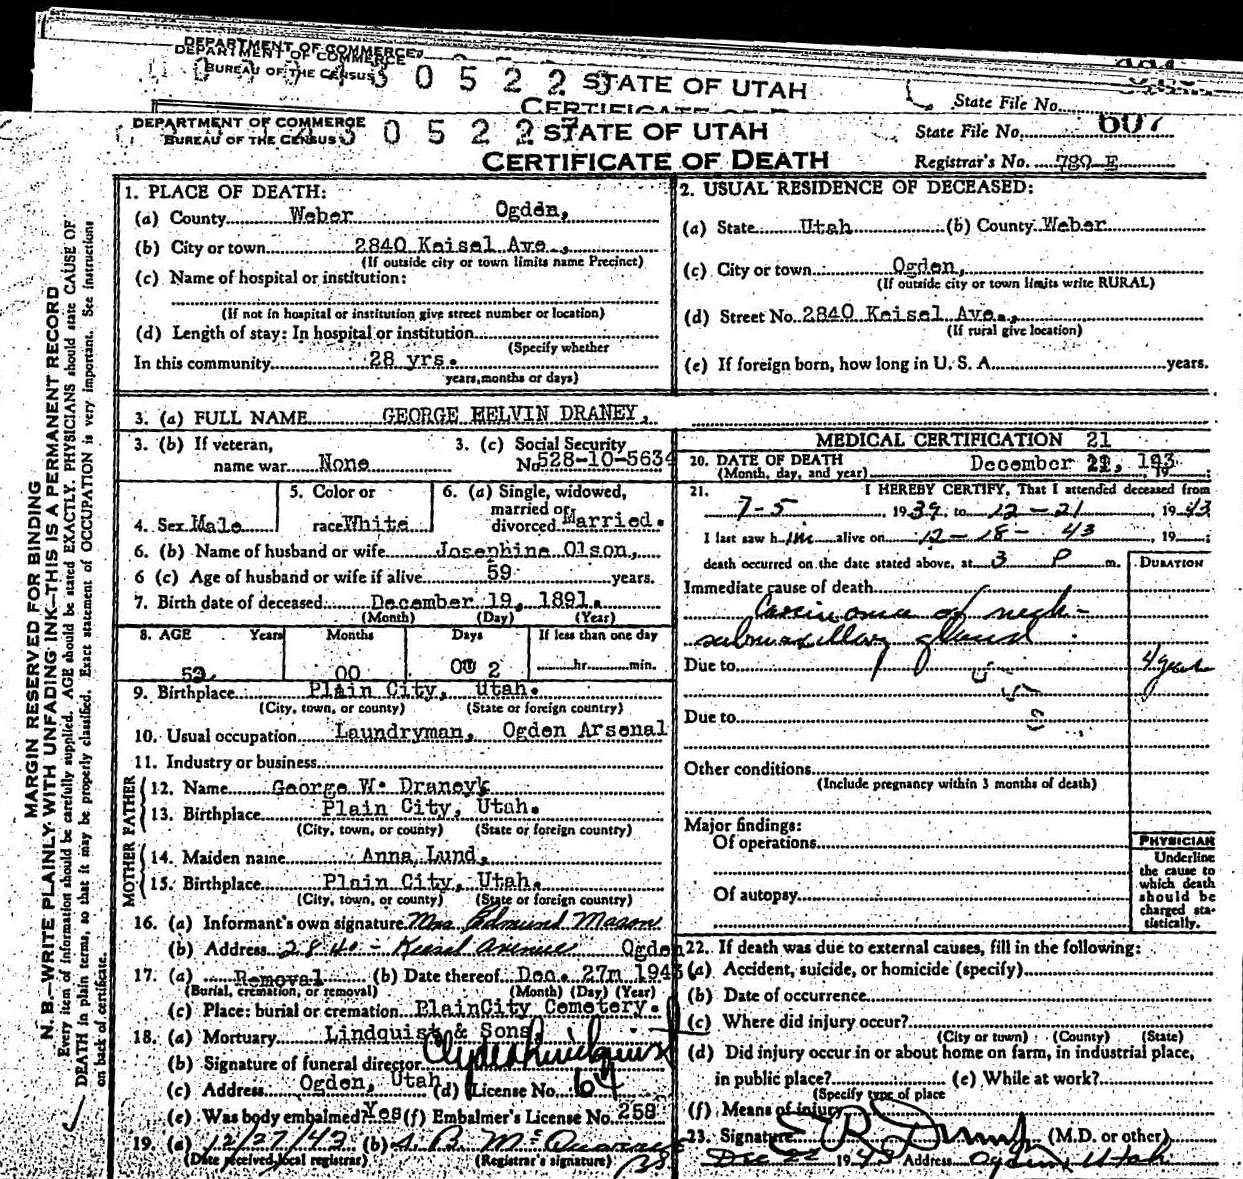 DEPARTMENT OF COMMERCE
BUREAU OF THE CENSUS
3 0 5 2 2 STATE OF UTAH
State File No.
DEPARTMENT OF COMMERCE
BUREAU OF THE CENSUS 3 0 5 2 2 STATE OF UTAH
State File No. 607
CERTIFICATE OF DEATH
Registrar's No. 789 E
MARGIN RESERVED FOR BINDING
N. B.—WRITE PLAINLY WITH UNFADING INK—THIS IS A PERMANENT RECORD
Every item of information should be carefully supplied. AGE should be stated EXACTLY. PHYSICIANS should state CAUSE OF
DEATH in plain terms, so that it may be properly classified. Exact statement of OCCUPATION is very important. See instructions
on back of certificate.
1. PLACE OF DEATH:
(a) County Weber Ogden,
(b) City or town 2840 Keisel Ave.,
(If outside city or town limits name Precinct)
(c) Name of hospital or institution:
(If not in hospital or institution give street number or location)
(d) Length of stay: In hospital or institution
(Specify whether
In this community 28 yrs.
years, months or days)
2. USUAL RESIDENCE OF DECEASED:
(a) State Utah (b) County Weber
(c) City or town Ogden,
(If outside city or town limits write RURAL)
(d) Street No. 2840 Keisel Ave.,
(If rural give location)
(e) If foreign born, how long in U. S. A. years.
3. (a) FULL NAME GEORGE MELVIN DRANEY,
3. (b) If veteran, 3. (c) Social Security
name war None No. 528-10-5634
4. Sex Male
5. Color or
race White
6. (a) Single, widowed,
married or
divorced Married.
6. (b) Name of husband or wife Josephine Olson,
6 (c) Age of husband or wife if alive 59 years.
7. Birth date of deceased December 19, 1891.
(Month) (Day) (Year)
8. AGE Years Months Days If less than one day
52 00 2 hr. min.
9. Birthplace Plain City, Utah.
(City, town, or county) (State or foreign country)
10. Usual occupation Laundryman, Ogden Arsenal
11. Industry or business
FATHER
12. Name George W. Draney
13. Birthplace Plain City, Utah.
(City, town, or county) (State or foreign country)
MOTHER
14. Maiden name Anna Lund,
15. Birthplace Plain City, Utah.
(City, town, or county) (State or foreign country)
16. (a) Informant's own signature Mrs Edmund Mason
(b) Address 2840 - Kiesel Avenue Ogden
17. (a) Removal (b) Date thereof Dec. 27m 1943
(Burial, cremation, or removal) (Month) (Day) (Year)
(c) Place: burial or cremation PlainCity Cemetery.
18. (a) Mortuary Lindquist & Sons
(b) Signature of funeral director Clyde Lindquist
(c) Address Ogden, Utah (d) License No. 64
(e) Was body embalmed? Yes (f) Embalmer's License No. 258
19. (a) 12/27/43 (b)
(Date received local registrar) (Registrar's signature)
MEDICAL CERTIFICATION 21
20. DATE OF DEATH December 21, 193
(Month, day, and year) 19
21. I HEREBY CERTIFY, That I attended deceased from
7-5, 1939, to 12-21, 1943
I last saw him alive on 12-18-43, 19
death occurred on the date stated above, at 3 P m.
DURATION
Immediate cause of death
Carcinoma of neck -
submaxillary gland
Due to 4 years
Due to
Other conditions
(Include pregnancy within 3 months of death)
Major findings:
Of operations
Of autopsy
PHYSICIAN
Underline
the cause to
which death
should be
charged sta-
tistically.
22. If death was due to external causes, fill in the following:
(a) Accident, suicide, or homicide (specify)
(b) Date of occurrence
(c) Where did injury occur?
(City or town) (County) (State)
(d) Did injury occur in or about home on farm, in industrial place,
in public place? (e) While at work?
(Specify type of place
(f) Means of injury
23. Signature (M.D. or other)
Dec 22 1943 Address Ogden, Utah